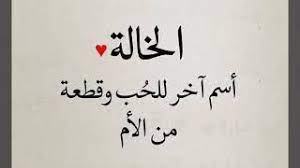 الخالة ♥
أسم آخر للحُب وقطعة
من الأم